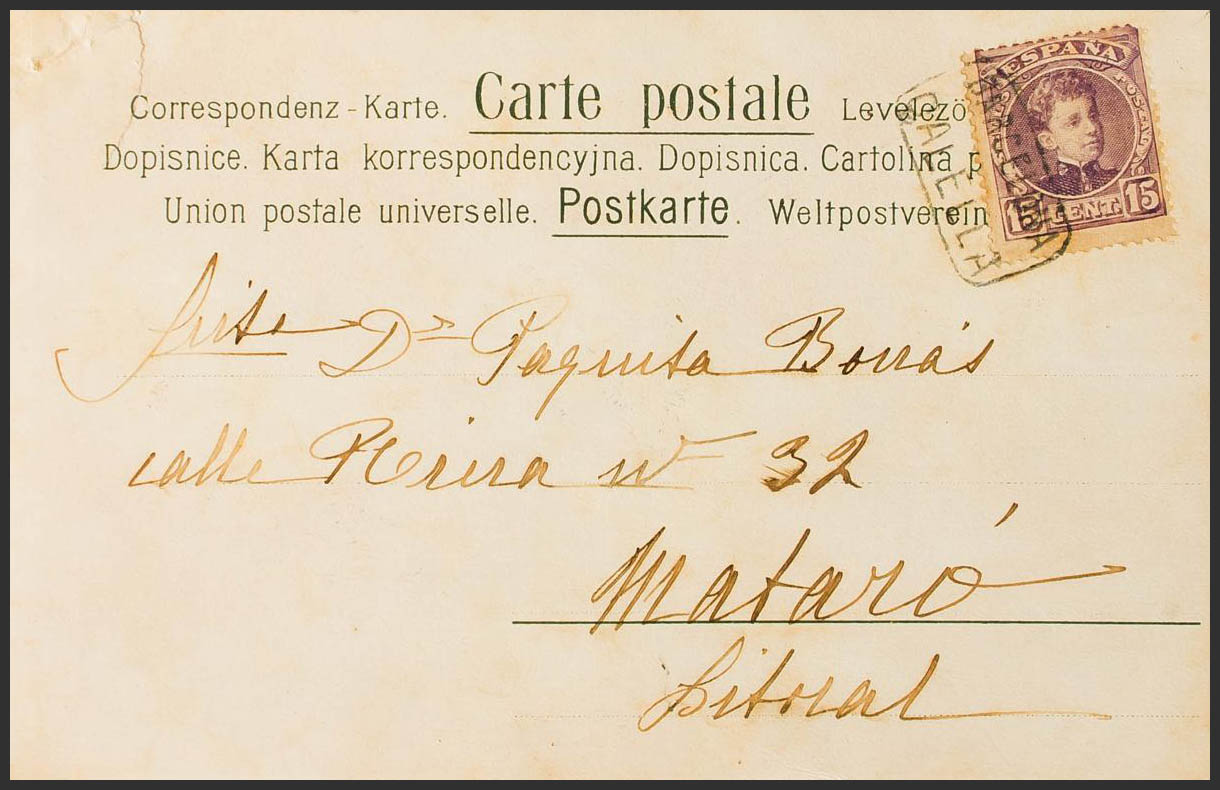 Correspondenz-Karte. Carte postale Levelező
Dopisnice. Karta korrespondencyjna. Dopisnica. Cartolina p
Union postale universelle. Postkarte. Weltpostverein
ESPAÑA
15 CENT. 15
CALELLA
Dª Paquita Borrás
calle Riera nº 32
Mataró
Litoral